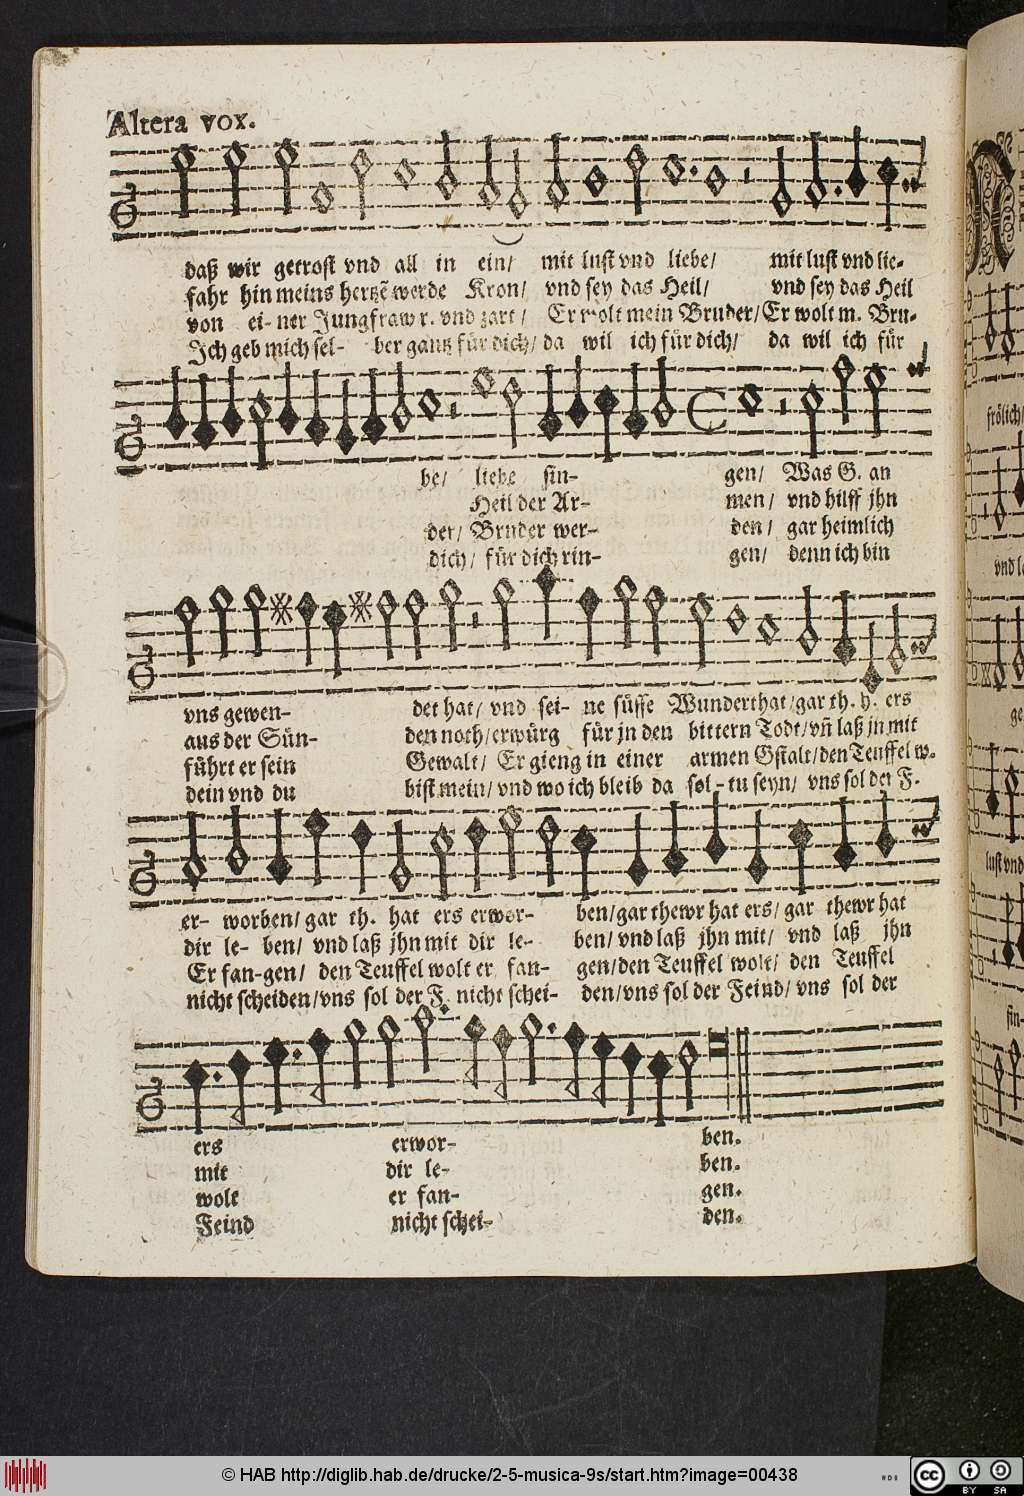 Altera vox.
daß wir getrost vnd all in ein/ mit lust vnd liebe/ mit lust vnd lie-
fahr hin meins hertzē werde Kron/ vnd sey das Heil/ vnd sey das Heil
von ei-ner Jungfraw r. vnd zart/ Er wolt mein Bruder/Er wolt m. Bru-
Ich geb mich sel- ber gantz für dich/ da wil ich für dich/ da wil ich für
be/ liebe sin- gen/ Was G. an
Heil der Ar- men/ vnd hilff jhn
der/ Bruder wer- den/ gar heimlich
dich/ für dich rin- gen/ denn ich bin
vns gewen- det hat/ vnd sei- ne süsse Wunderthat/gar th. h. ers
aus der Sün- den noth/erwürg für jn den bittern Todt/vñ laß jn mit
führt er sein Gewalt/ Er gieng in einer armen Gstalt/den Teuffel w.
dein vnd du bist mein/ vnd wo ich bleib da sol-tu seyn/ vns sol der F.
er- worben/gar th. hat ers erwor- ben/gar thewr hat ers/ gar thewr hat
dir le- ben/ vnd laß jhn mit dir le- ben/ vnd laß jhn mit/ vnd laß jhn
Er fan-gen/ den Teuffel wolt er fan- gen/den Teuffel wolt/ den Teuffel
nicht scheiden/vns sol der F. nicht schei- den/vns sol der Feind/ vns sol der
ers erwor- ben.
mit dir le- ben.
wolt er fan- gen.
Feind nicht schei- den.
frölich/
vnd l
ge
lust vnd
sin-
© HAB http://diglib.hab.de/drucke/2-5-musica-9s/start.htm?image=00438
cc BY SA